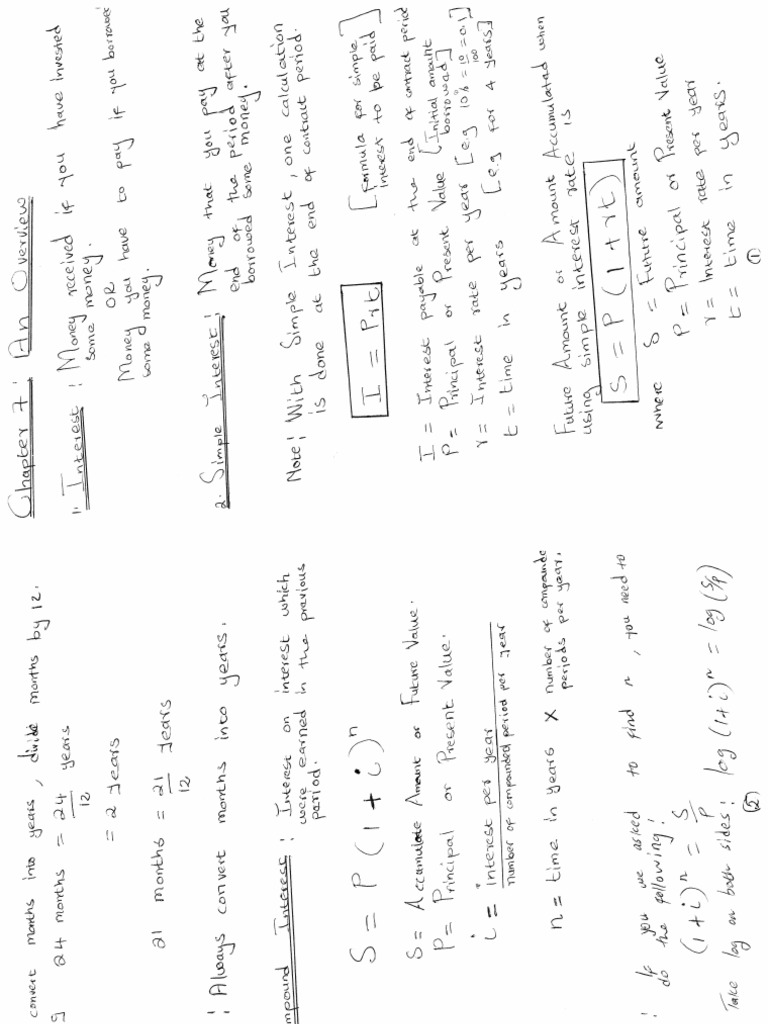 Chapter 7: An Overview
1. Interest : Money received if you have invested
some money.
OR
Money you have to pay if you borrowed
some money.
2. Simple Interest: Money that you pay at the
end of the period after you
borrowed some money.
Note: With Simple Interest, one calculation
is done at the end of contract period.
I = Prt [formula for simple
interest to be paid]
I = Interest payable at the end of contract period
P = Principal or Present Value [Initial amount
borrowed]
r = Interest rate per year [e.g 10% = 10/100 = 0.1]
t = time in years [e.g for 4 years]
Future Amount or Amount Accumulated when
using simple interest rate is
S = P(1 + rt)
where S = Future amount
P = Principal or Present Value
r = Interest rate per year
t = time in years.
①
convert months into years, divide months by 12.
g 24 months = 24/12 years
= 2 years
21 months = 21/12 years
: Always convert months into years.
mpound Interest : Interest on interest which
were earned in the previous
period.
S = P(1 + i)ⁿ
S = Accumulate Amount or Future Value.
P = Principal or Present Value.
i = interest per year
number of compounded period per year
n = time in years × number of compounde
periods per year.
: If you we asked to find n, you need to
do the following:
(1 + i)ⁿ = S/P
Take log on both sides: log(1+i)ⁿ = log(S/P)
②